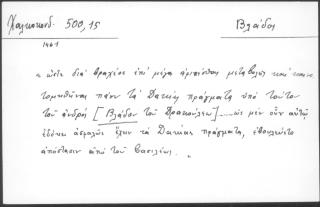 Χαλκοκονδ. 500,15
Βλάδοι
1461
" ὥστε διὰ βραχέος ἐπὶ μέγα ἀφικέσθαι μεταβολῆς καὶ
τὰ Δακίας πράγματα ὑπὸ τούτου
τοῦ ἀνδρὸς [Βλάδου τοῦ Δρακούλεω]......ὡς μὲν οὖν αὐτῷ
ἐδόκει ἀσφαλῶς ἔχειν τὰ Δακίας πράγματα, ἐβουλεύετο
ἀπόστασιν ἀπὸ τοῦ βασιλέως. "